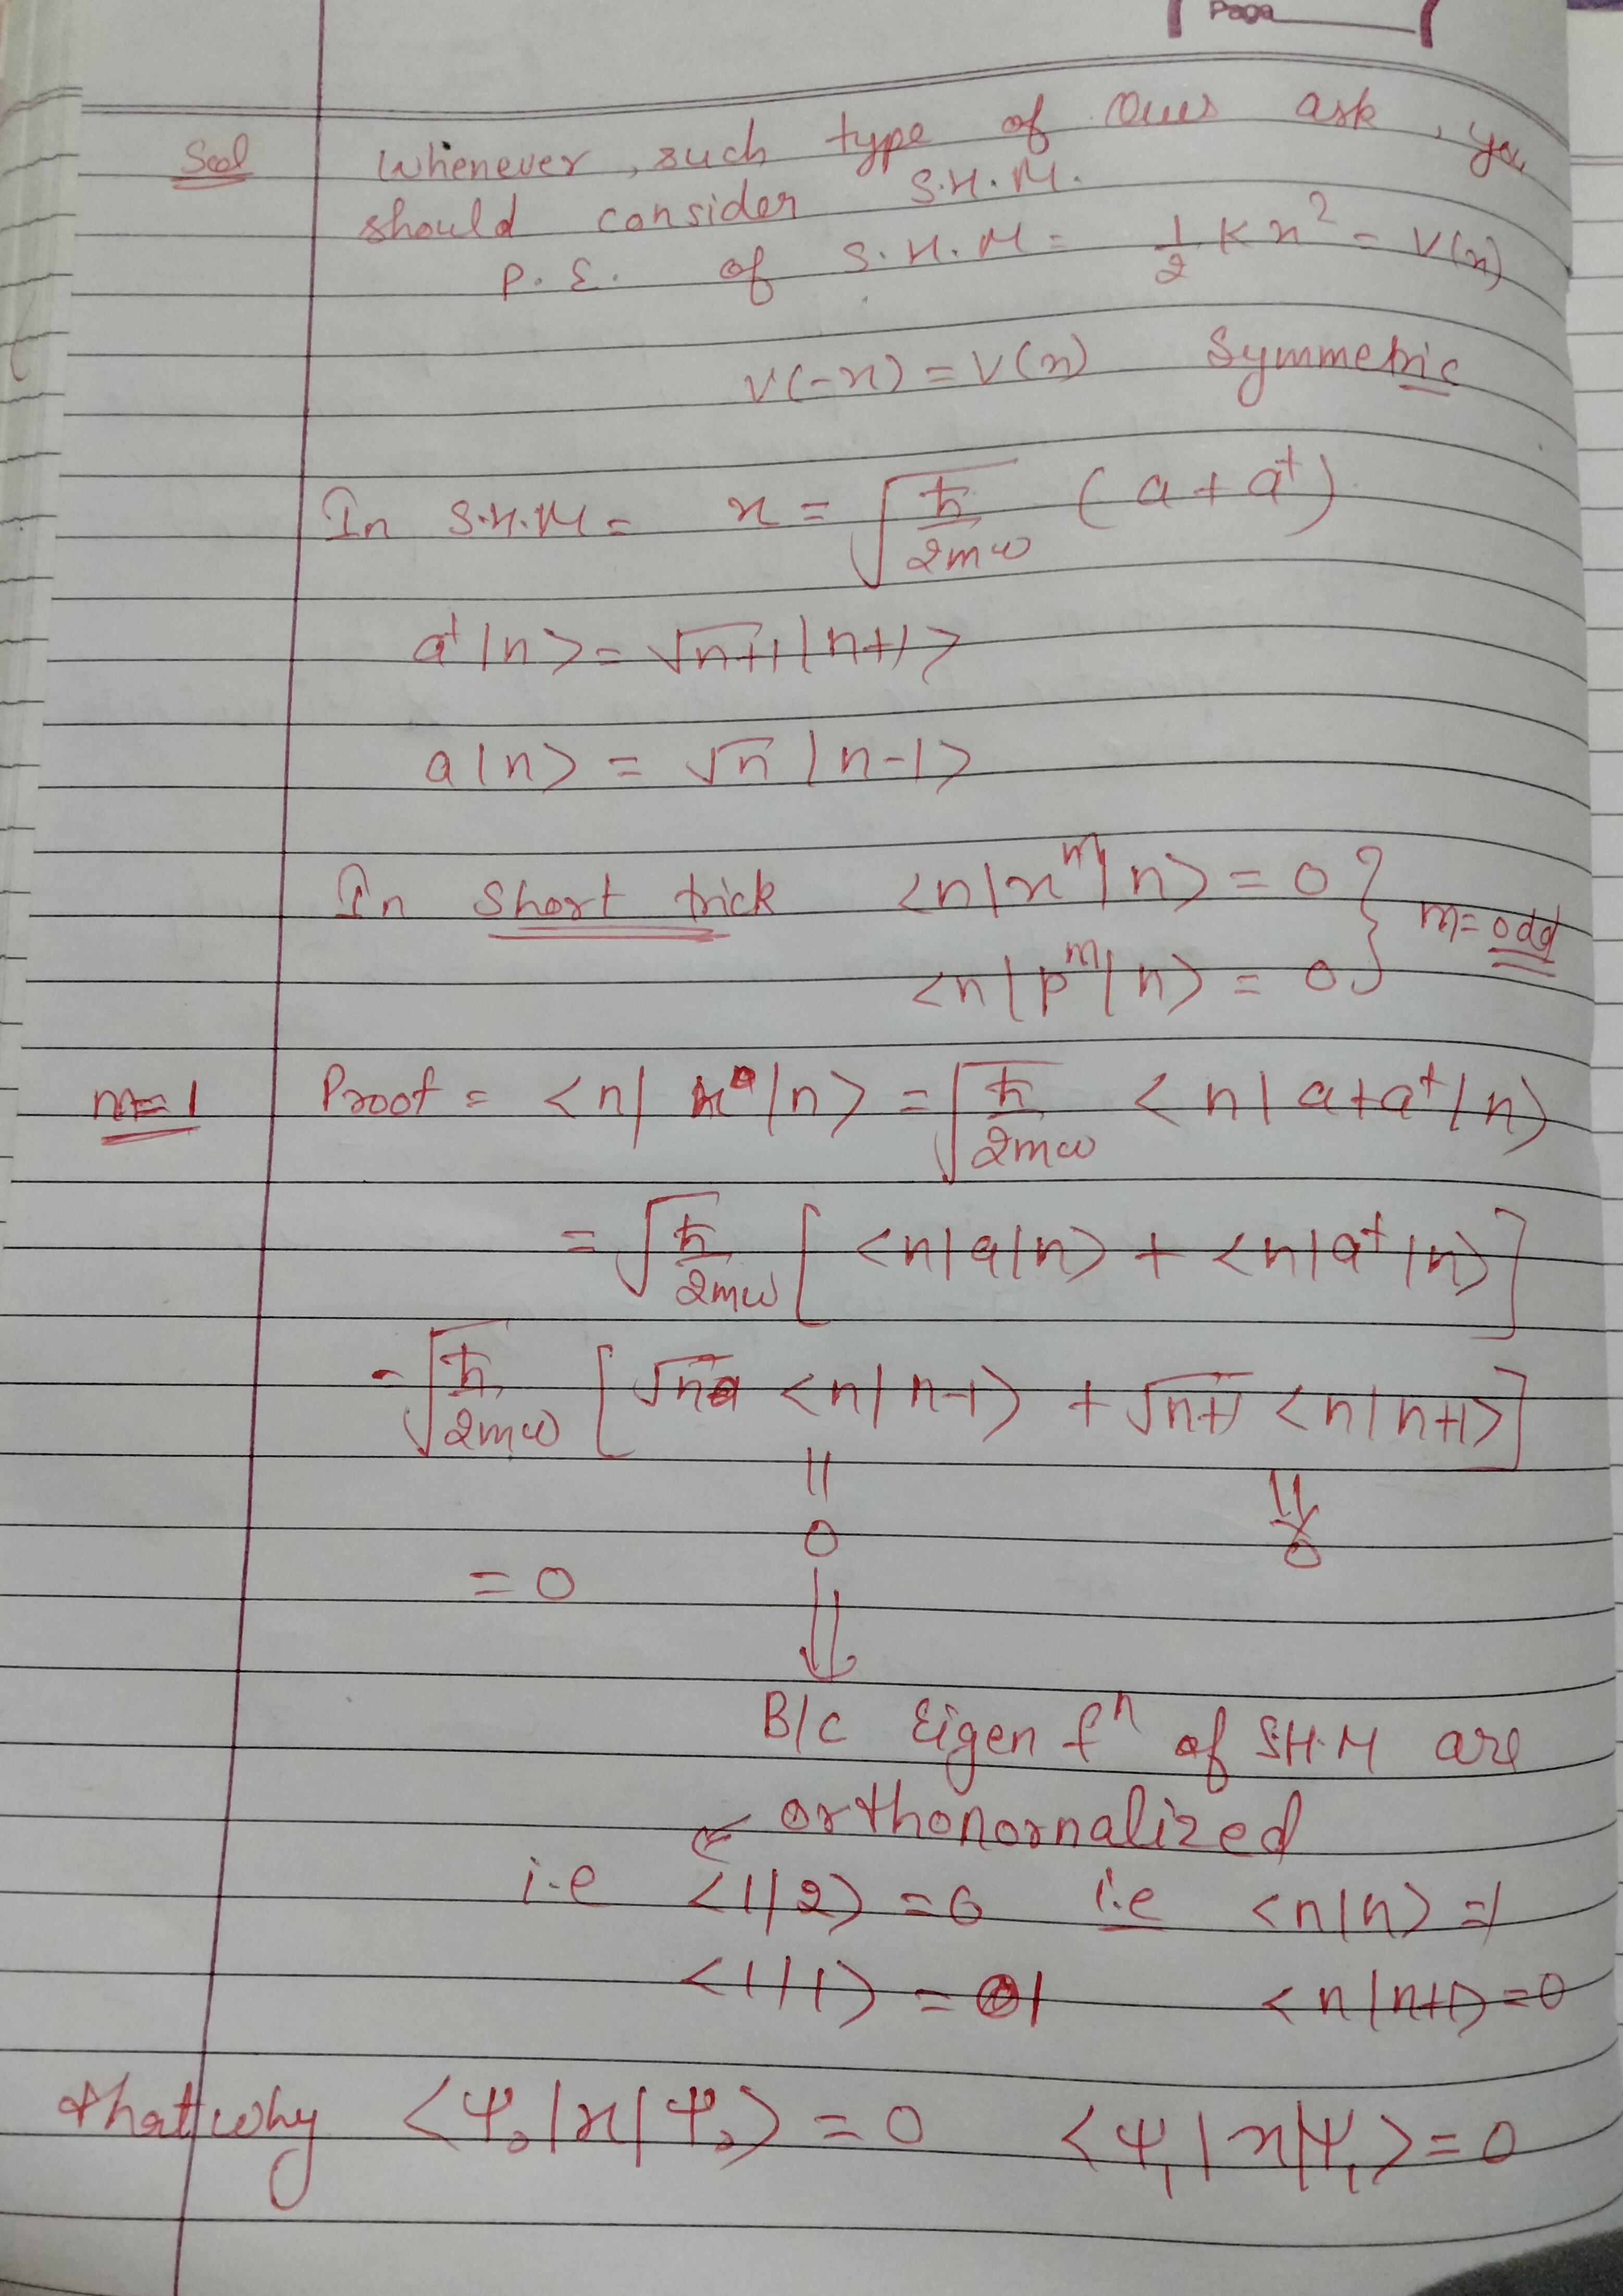 Page
Sol Whenever, such type of Ques ask, you
should consider S.H.M.
P.E. of S.H.M = 1/2 K x² = V(x)
V(-x) = V(x) Symmetric
In S.H.M = x = √(ħ/2mω) (a + a†)
a†|n> = √n+1 |n+1>
a|n> = √n |n-1>
In Short trick <n|x^m|n> = 0 } m = odd
<n|p^m|n> = 0 }
m=1 Proof = <n| x |n> = √(ħ/2mω) <n| a+a† |n>
= √(ħ/2mω) [ <n|a|n> + <n|a†|n> ]
= √(ħ/2mω) [ √n <n|n-1> + √n+1 <n|n+1> ]
|| ⇓
0 0
= 0 ⇓
B/c Eigen fⁿ of S.H.M are
← orthonornalized
i.e <1|2> = 0 i.e <n|n> = 1
<1|1> = 1 <n|n+1> = 0
that why <Ψ₀|x|Ψ₀> = 0 <Ψ₁|x|Ψ₁> = 0